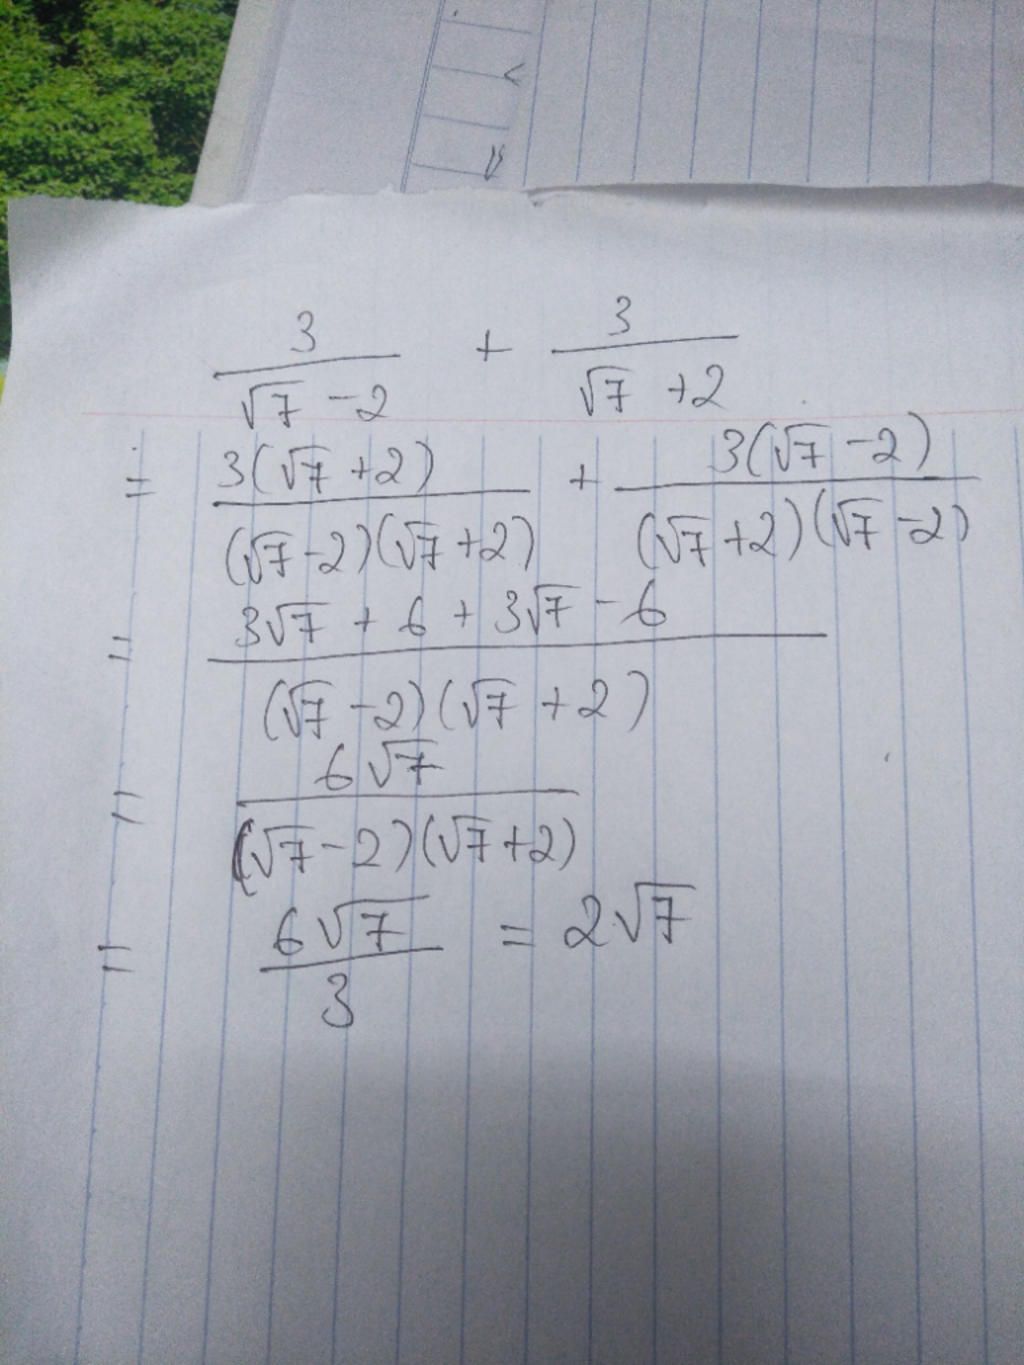 3/(√7 -2) + 3/(√7 +2)
= 3(√7 +2)/((√7-2)(√7+2)) + 3(√7 -2)/((√7+2)(√7-2))
= (3√7 + 6 + 3√7 - 6)/((√7 -2)(√7 +2))
= 6√7/((√7-2)(√7+2))
= 6√7/3 = 2√7